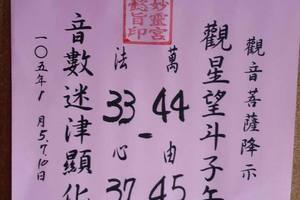 觀音菩薩降示
觀星望斗子午
妙靈宮
懿旨印
萬 44 - 由 45
法 33 心 37
音數迷津顯化
一〇五年1月5.7.10日